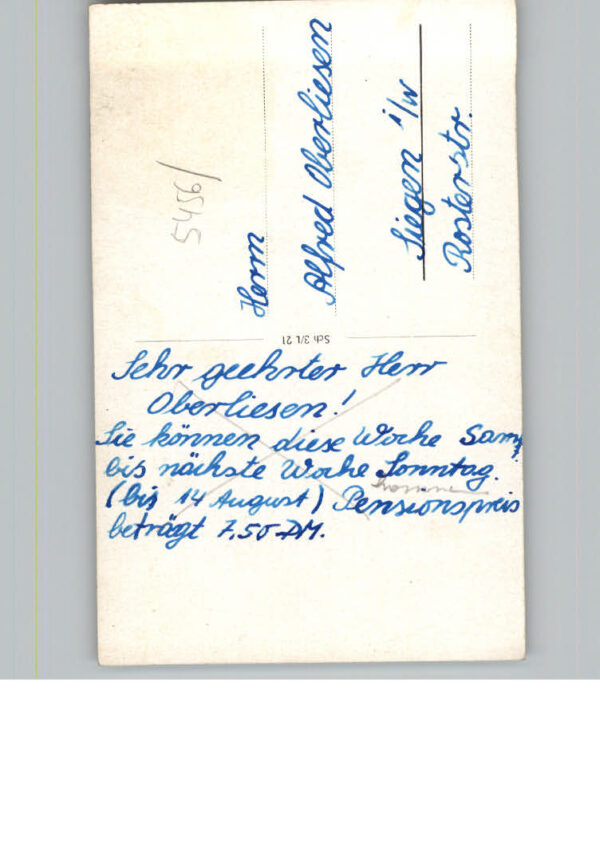 Sehr geehrter Herr
Oberliesen!
Sie können diese Woche Sams
bis nächste Woche Sonntag.
kommen
(bis 14 August) Pensionspreis
beträgt 7,50 DM.
Herrn
Alfred Oberliesen
Siegen i/W
Rosterstr.
Sch 3/1. 21
5456/